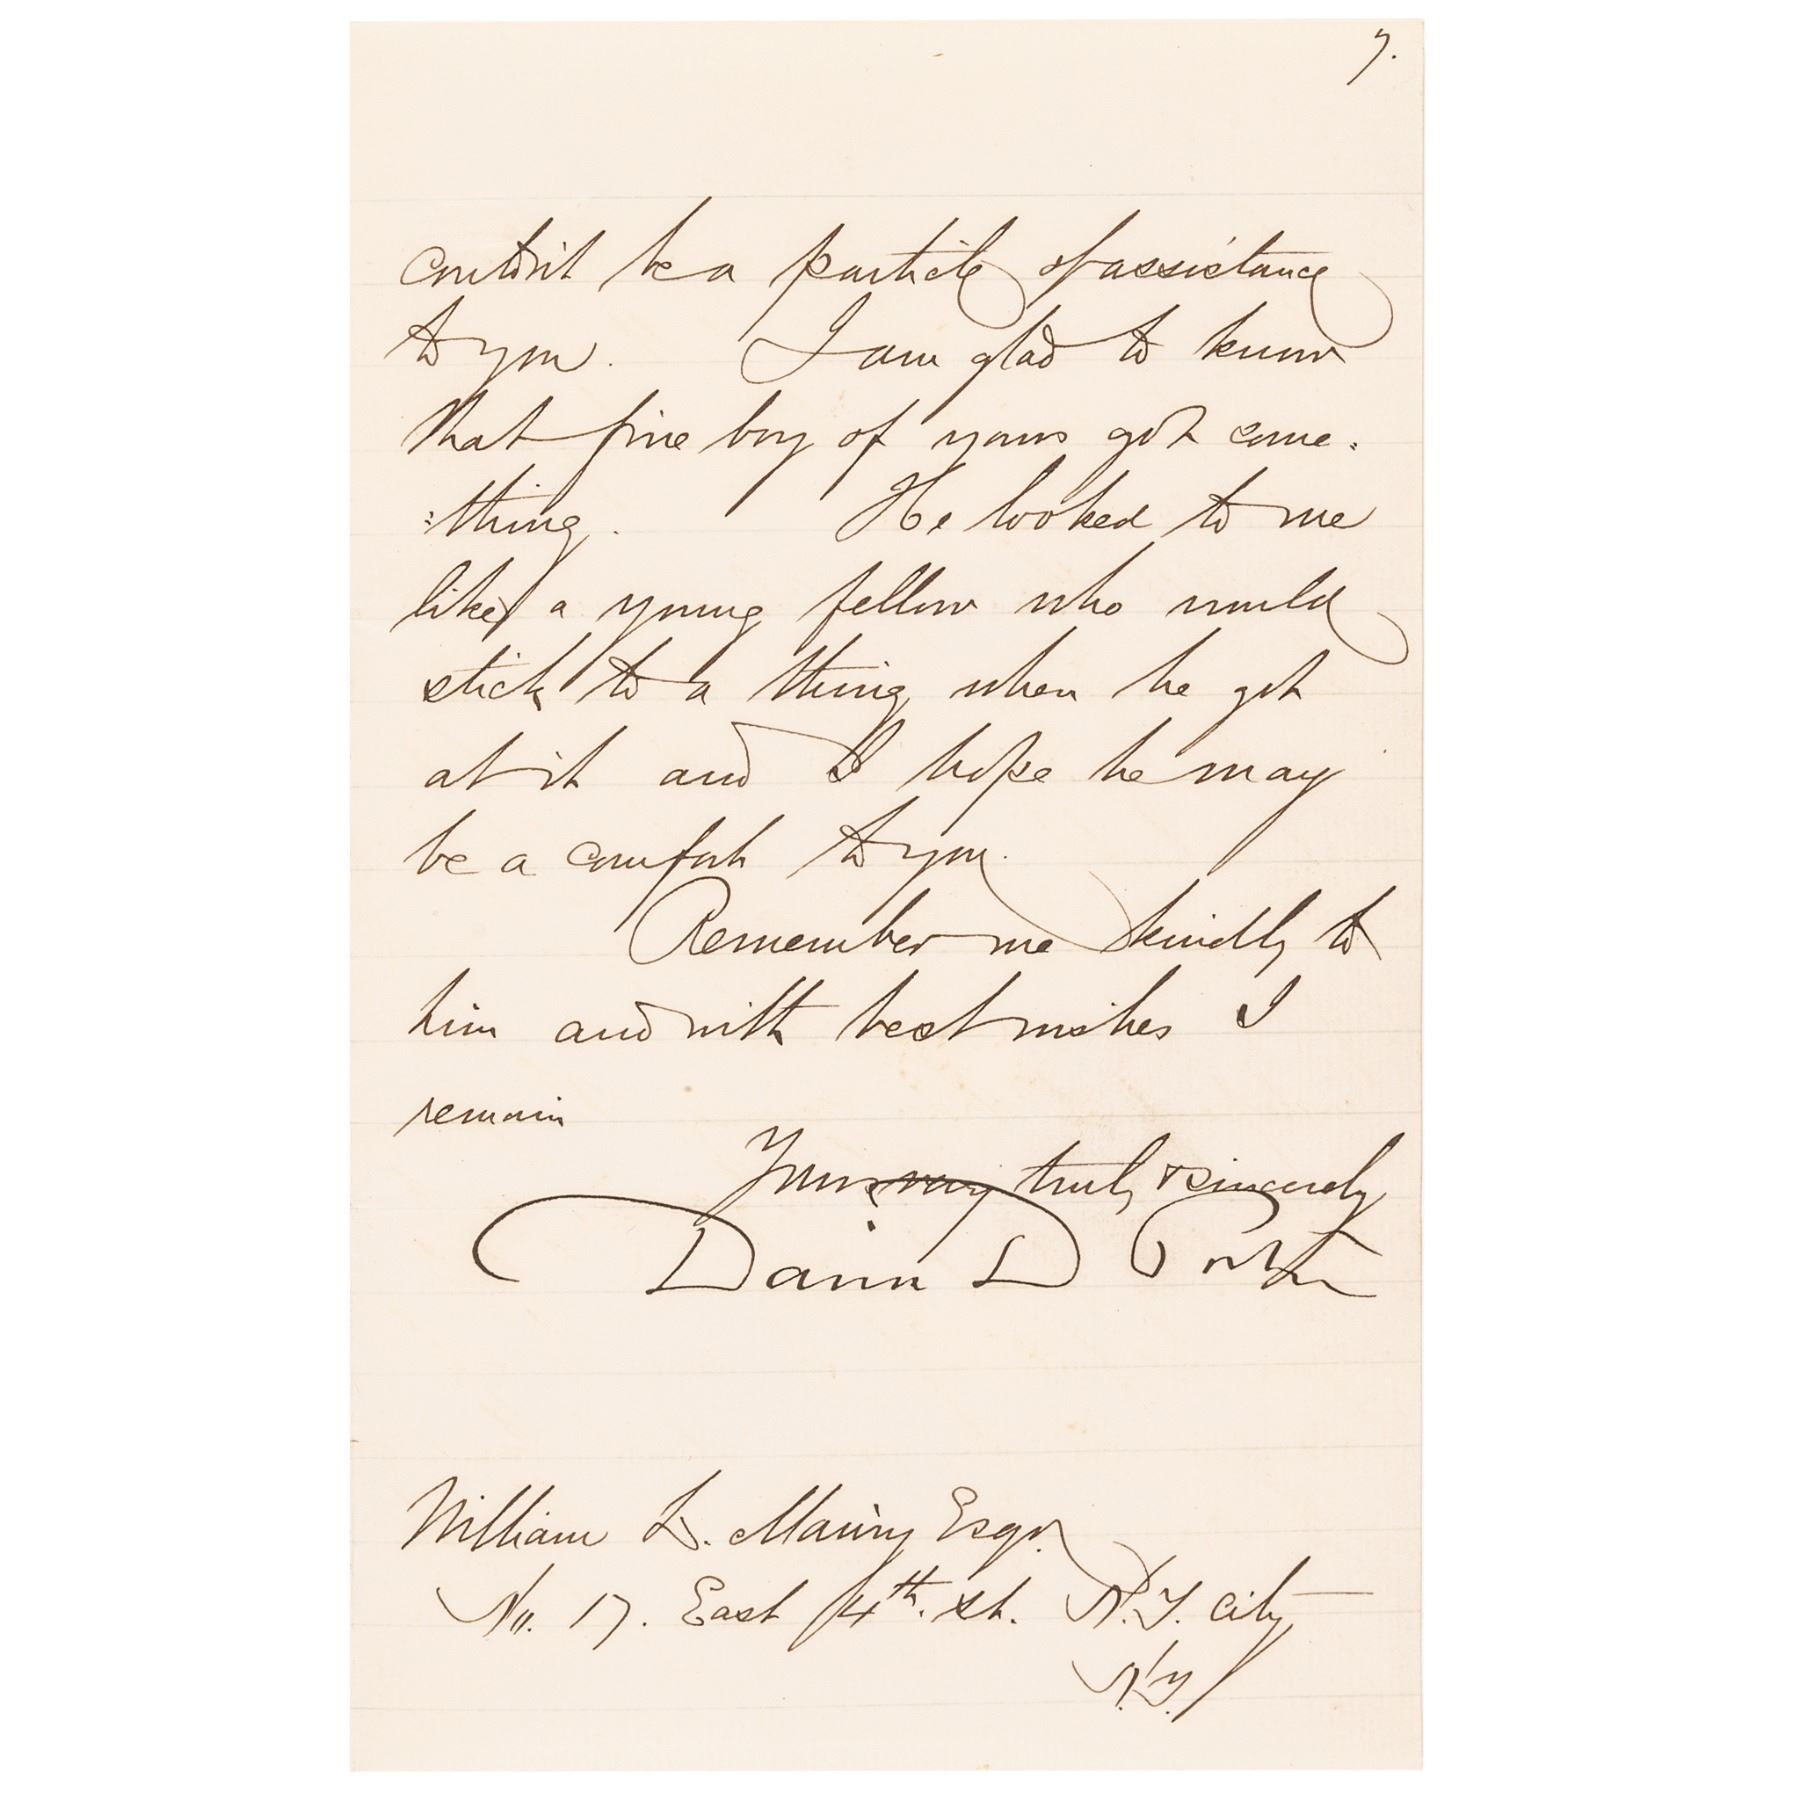 7.
couldn't be a particle of assistance
to you. I am glad to know
that fine boy of yours got some=
=thing. He looked to me
like a young fellow who would
stick to a thing when he got
at it and I hope he may
be a comfort to you.
Remember me kindly to
him and with best wishes I
remain
Yours very truly & sincerely
David D Porter
William L. Maury Esqr.
No. 17. East 14th. st. N.Y. City
N.Y.